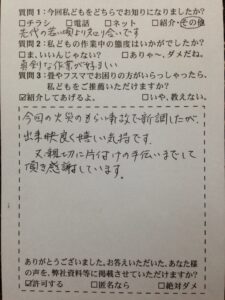 質問1:今回私どもをどちらでお知りになりましたか?
□チラシ □電話 □ネット □紹介・その他
先代の若い頃より知り合いです
質問2:私どもの作業中の態度はいかがでしたか?
□ま、いいんじゃない? □ありゃ〜、ダメだね。
真剣な作業が好ましい
質問3:畳やフスマでお困りの方がいらっしゃったら、
私どもをご推薦いただけますか?
☑紹介してあげるよ。 □いや、教えない。
今回の火災のもらい事故で新調したが、
出来映良く嬉しい気持です。
又親切に片付けの手伝いまでして
頂き感謝しています。
ありがとうございました。お答えいただいた、あなた様
の声を、弊社資料等に掲載させていただけますか?
☑許可する □匿名なら □絶対ダメ